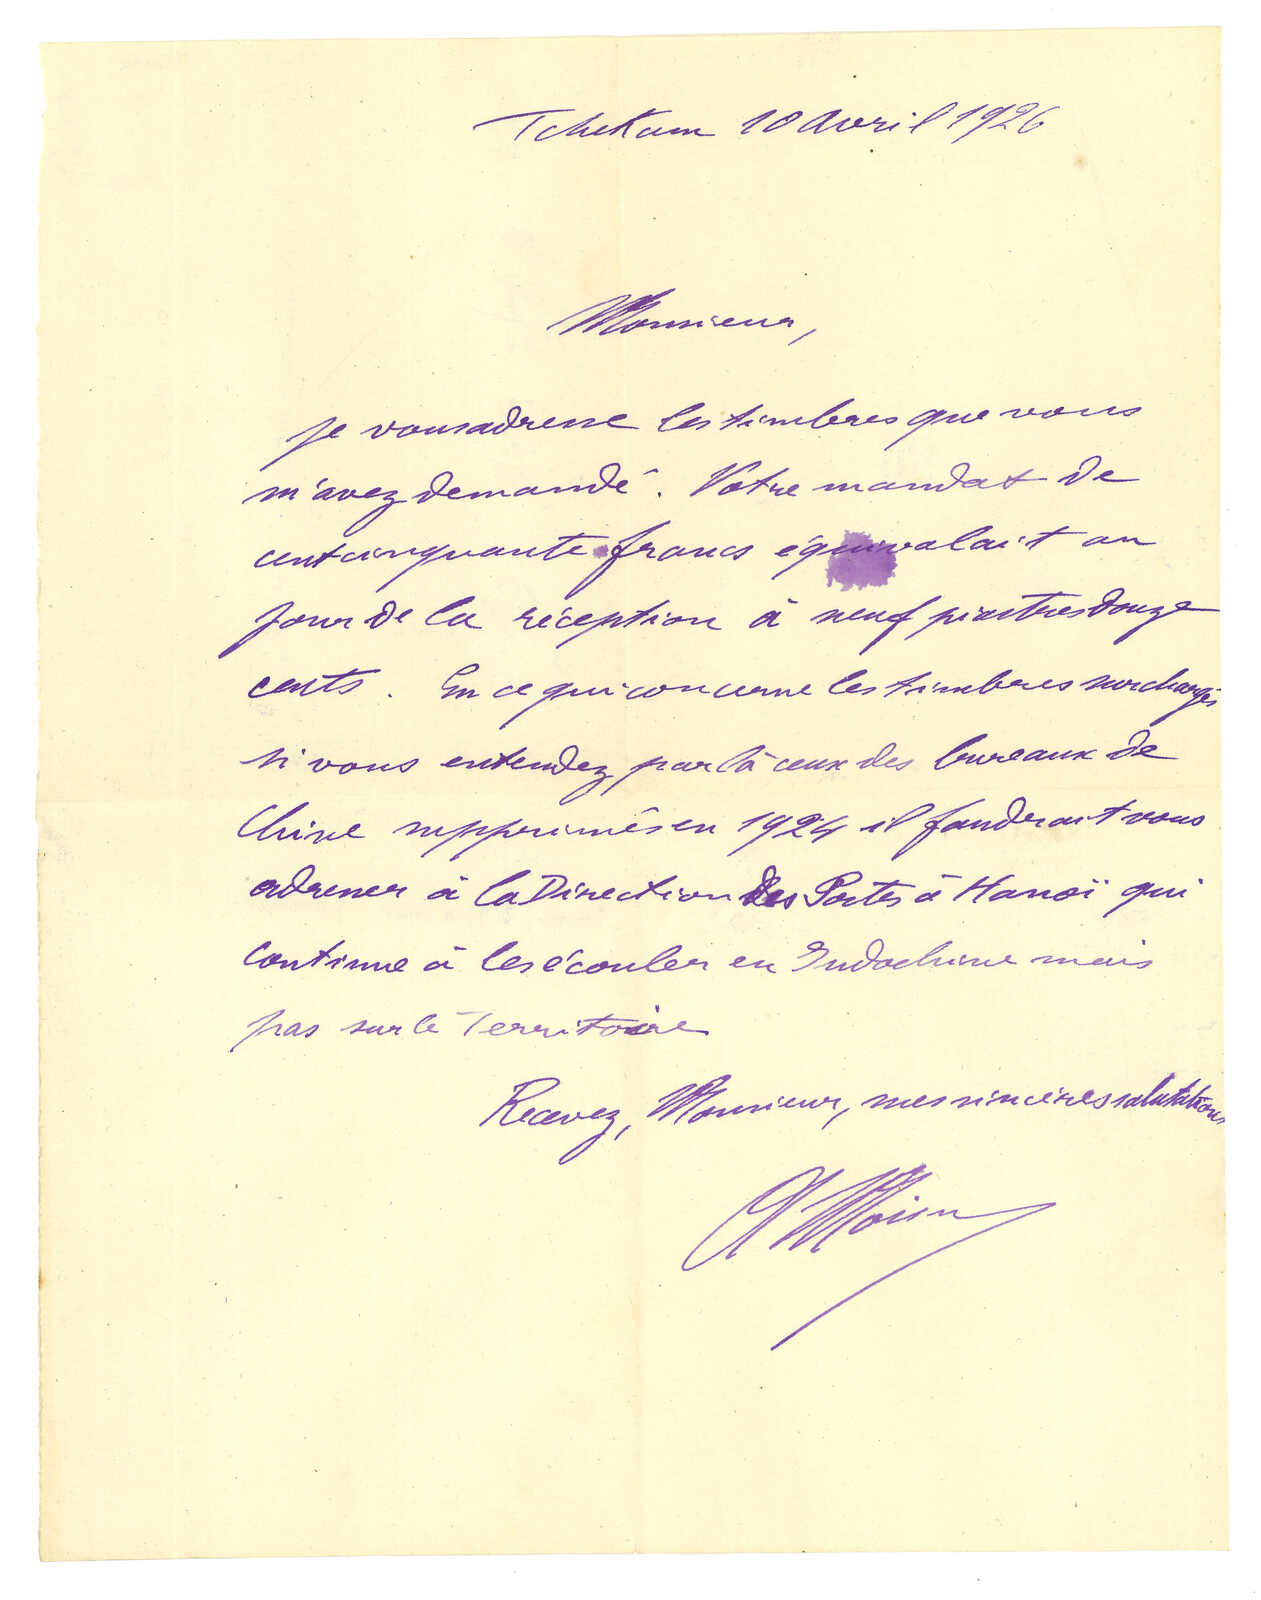 Tchekam 10 Avril 1926
Monsieur,
Je vous adresse les timbres que vous
m'avez demandé. Votre mandat de
cent cinquante francs équivalait au
jour de la réception à neuf piastres douze
cents. En ce qui concerne les timbres surchargés
si vous entendez par là ceux des bureaux de
Chine supprimés en 1924 il faudrait vous
adresser à la Direction des Postes à Hanoï qui
continue à les écouler en Indochine mais
pas sur le Territoire
Recevez, Monsieur, mes sincères salutations